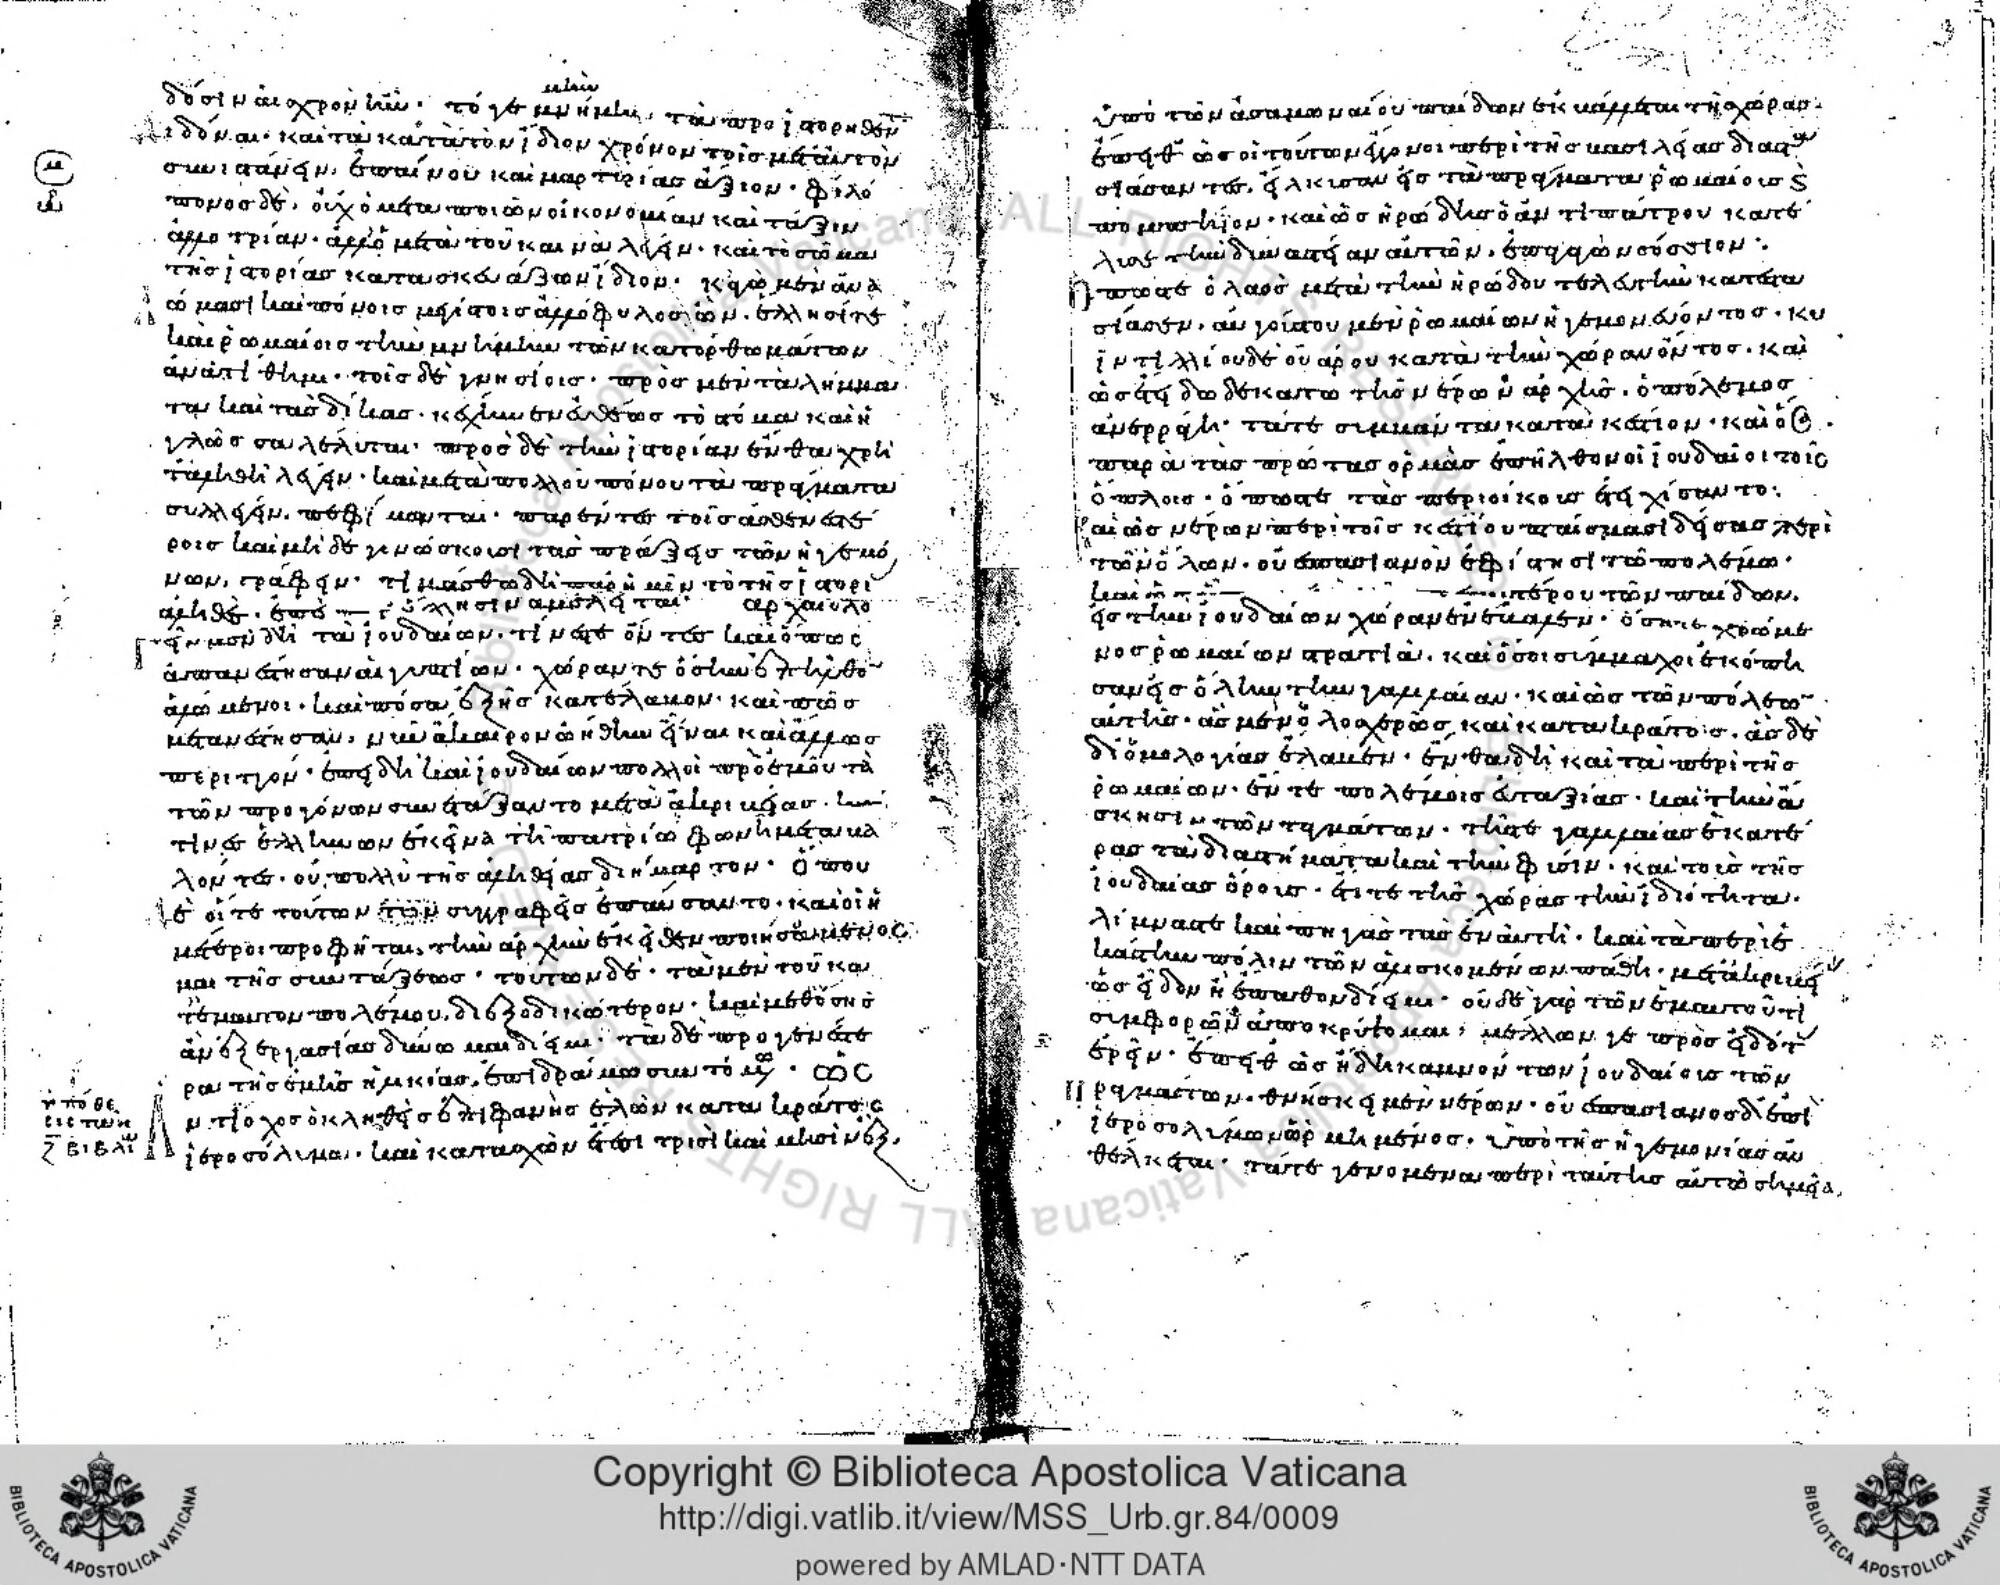 δόσιν αἰσχρὸν ἦν· τό γε μὴν μνήμη, τὰ προϊστορηθέντα
διδόναι· καὶ τὰ κατὰ τὸν ἴδιον χρόνον τοῖς μετ' αὐτὸν
συνιστάνειν, ἐπαίνου καὶ μαρτυρίας ἄξιον· φιλό
πονος δὲ, οὐχ ὁ μεταποιῶν οἰκονομίαν καὶ τάξιν
ἀλλοτρίαν· ἀλλ' ὁ μετὰ τοῦ καινὰ λέγειν· καὶ τὸ σῶμα
τῆς ἱστορίας κατασκευάζων ἴδιον· κἀγὼ μὲν ἀνα
λώμασι καὶ πόνοις μεγίστοις ἀλλόφυλος ὢν, ἕλλησί τε
καὶ ῥωμαίοις τὴν μνήμην τῶν κατορθωμάτων
ἀνατίθημι· τοῖς δὲ γνησίοις· πρὸς μὲν τὰ λήμμα
τα καὶ τὰς δίκας· κέχηνεν εὐθέως τὸ στόμα καὶ ἡ
γλῶσσα λέλυται· πρὸς δὲ τὴν ἱστορίαν ἔνθα χρὴ
τἀληθῆ λέγειν· καὶ μετὰ πολλοῦ πόνου τὰ πράγματα
συλλέγειν, πεφίμωνται· παρέντες τοῖς ἀσθενεστέ
ροις καὶ μηδὲ γινώσκουσι τὰς πράξεις τῶν ἡγεμό
νων, γράφειν· τιμάσθω δὴ παρ' ἡμῖν τὸ τῆς ἱστορί
ἀληθὲς· ἕλλησιν ἀμελεῖται· ἀρχαιολο
γεῖν μὲν δὴ τὰ ἰουδαίων, τίνες ὄντες καὶ ὅπως
ἀπανέστησαν αἰγυπτίων· χώραν τε ὅσην ἐπῆλθον
ἀλώμενοι· καὶ πόσα ἑξῆς κατέλαβον· καὶ πῶς
μετανέστησαν, νῦν ἄκαιρον ᾠήθην εἶναι καὶ ἄλλως
περιττόν· ἐπειδὴ καὶ ἰουδαίων πολλοὶ πρὸ ἐμοῦ τὰ
τῶν προγόνων συνετάξαντο μετὰ ἀκριβείας· καί
τινες ἑλλήνων ἐκεῖνα τῇ πατρίῳ φωνῇ μεταβα
λόντες· οὐ πολὺ τῆς ἀληθείας διήμαρτον· ὅπου
δ' οἵ τε τούτων συγγραφεῖς ἐπαύσαντο· καὶ οἱ ἡ
μέτεροι προφῆται, τὴν ἀρχὴν ἐκεῖθεν ποιησάμενος
μαι τῆς συντάξεως· τούτων δὲ· τὰ μὲν τοῦ κα
τ' ἐμαυτὸν πολέμου, διεξοδικώτερον· καὶ μεθ' ὅσης
ἂν ἐξεργασίας δύνωμαι δίειμι· τὰ δὲ προγενέστε
ρα τῆς ἐμῆς ἡλικίας, ἐπιδραμῶ συντόμως· ὡς
ὑπόθε
σις τῶν
ζ βιβλί
Ἀντίοχος ὁ κληθεὶς ἐπιφανὴς ἑλὼν κατὰ κράτος
ἱεροσόλυμα· καὶ κατασχὼν ἔτεσι τρισὶ καὶ μησὶν ἓξ,
ὑπὸ τῶν ἀσαμωναίου παίδων ἐκβάλλεται τῆς χώρας·
ἔπειθ' ὡς οἱ τούτων ἔγγονοι περὶ τῆς βασιλείας διαστα
σιάσαντες, εἵλκυσαν εἰς τὰ πράγματα ῥωμαίους
πομπήϊον· καὶ ὡς ἡρώδης ὁ ἀντιπάτρου κατέ
λυσε τὴν δυναστείαν αὐτῶν, ἐπαγαγὼν σόσσιον·
ὅπως τε ὁ λαὸς μετὰ τὴν ἡρώδου τελευτὴν κατεστα
σίασεν, αὐγούστου μὲν ῥωμαίων ἡγεμονεύοντος· κυ
ϊντιλλίου δὲ οὐάρου κατὰ τὴν χώραν ὄντος· καὶ
ὡς ἔτει δωδεκάτω τῆς νέρωνος ἀρχῆς, ὁ πόλεμος
ἀνερράγη· τά τε συμβάντα κατὰ κέστιον· καὶ ὅσα
παρὰ τὰς πρώτας ὁρμὰς ἐπῆλθον οἱ ἰουδαῖοι τοῖς
ὅπλοις· ὅπως τε τὰς περιοίκους ἐτειχίσαντο·
καὶ ὡς νέρων περὶ τοῖς κεστίου πταίσμασι δείσας περὶ
τῶν ὅλων· οὐεσπασιανὸν ἐφίστησι τῷ πολέμω·
καὶ ὡς τέρου τῶν παίδων,
εἰς τὴν ἰουδαίων χώραν ἐνέβαλεν· ὅση τε χρώμε
νος ῥωμαίων στρατιᾷ, καὶ ὅσοι σύμμαχοι ἐκόπη
σαν εἰς ὅλην τὴν γαλιλαίαν· καὶ ὡς τῶν πόλεων
αὐτῆς· ἃς μὲν ὁλοσχερῶς καὶ κατὰ κράτος, ἃς δὲ
δι' ὁμολογίας ἔλαβεν· ἔνθα δὴ καὶ τὰ περὶ τῆς
ῥωμαίων· ἔν τε πολέμοις εὐταξίας· καὶ τὴν ἄ
σκησιν τῶν ταγμάτων· τῆς τε γαλιλαίας ἑκατέ
ρας τὰ διαστήματα καὶ τὴν φύσιν· καὶ τοὺς τῆς
ἰουδαίας ὅρους· ἔτι τε τῆς χώρας τὴν ἰδιότητα·
λίμνας τε καὶ πηγὰς τὰς ἐν αὐτῇ· καὶ τὰ περὶ ἑ
κάστην πόλιν τῶν ἁλισκομένων πάθη· μετὰ ἀκριβεί
ὡς εἶδον ἢ ἔπαθον δίειμι· οὐδὲ γὰρ τῶν ἐμαυτοῦ τι
συμφορῶν ἀποκρύψομαι, μέλλων γε πρὸς εἰδότ
ἐρεῖν· ἔπειθ' ὡς ἤδη καμνόντων ἰουδαίοις τῶν
πραγμάτων, θνήσκει μὲν νέρων· οὐεσπασιανὸς δὲ ἐπὶ
ἱεροσολύμων ὡρμημένος, ὑπὸ τῆς ἡγεμονίας ἀν
θέλκεται· τά τε γενόμενα περὶ ταύτης αὐτῷ σημεῖα,
Copyright © Biblioteca Apostolica Vaticana
http://digi.vatlib.it/view/MSS_Urb.gr.84/0009
powered by AMLAD·NTT DATA
BIBLIOTECA APOSTOLICA VATICANA
BIBLIOTECA APOSTOLICA VATICANA